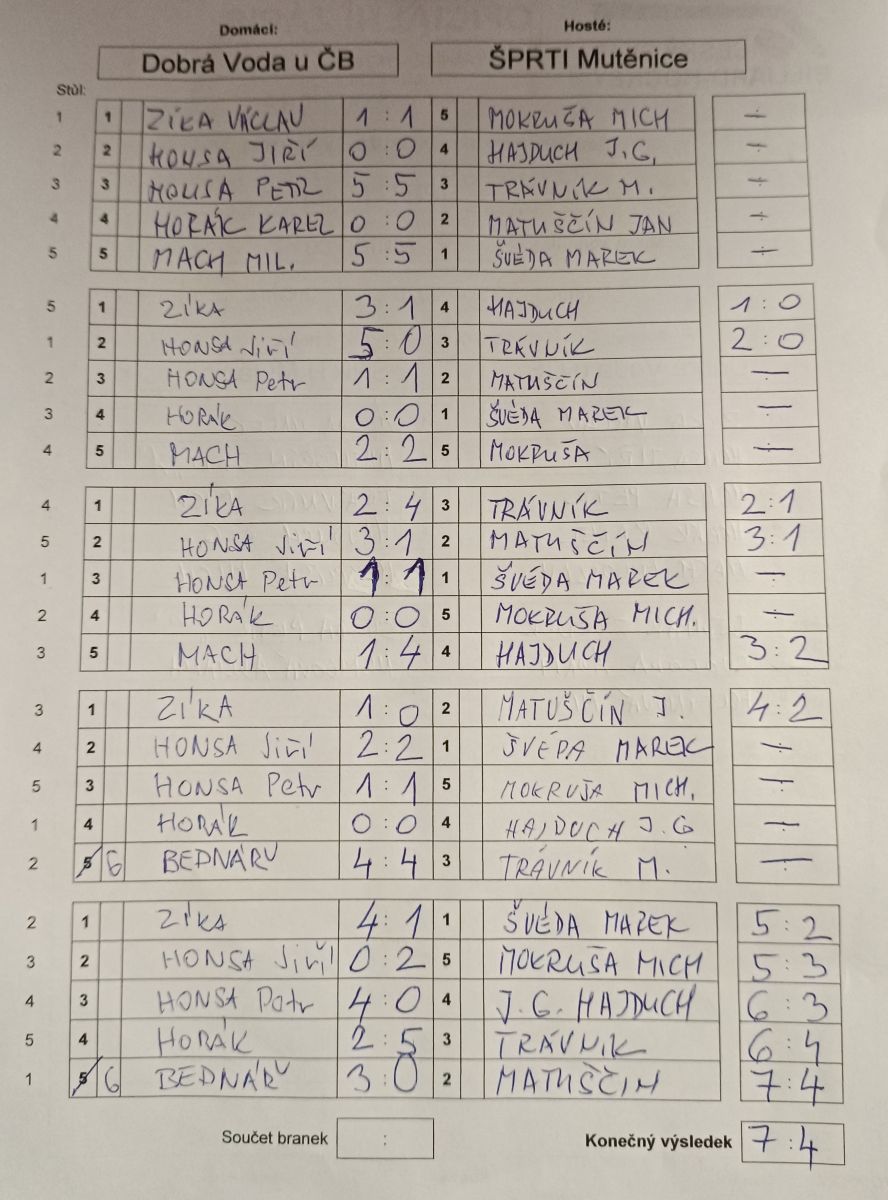 Domácí: Hosté:
Dobrá Voda u ČB ŠPRTI Mutěnice
Stůl:
1 1 ZÍKA VÁCLAV 1 : 1 5 MOKRUŠA MICH ÷
2 2 HONSA JIŘÍ 0 : 0 4 HAJDUCH J.G. ÷
3 3 HONSA PETR 5 : 5 3 TRÁVNÍK M. ÷
4 4 HORÁK KAREL 0 : 0 2 MATUŠČÍN JAN ÷
5 5 MACH MIL. 5 : 5 1 ŠVÉDA MAREK ÷
5 1 ZÍKA 3 : 1 4 HAJDUCH 1 : 0
1 2 HONSA Jiří 5 : 0 3 TRÁVNÍK 2 : 0
2 3 HONSA Petr 1 : 1 2 MATUŠČÍN ÷
3 4 HORÁK 0 : 0 1 ŠVÉDA MAREK ÷
4 5 MACH 2 : 2 5 MOKRUŠA ÷
4 1 ZÍKA 2 : 4 3 TRÁVNÍK 2 : 1
5 2 HONSA Jiří 3 : 1 2 MATUŠČÍN 3 : 1
1 3 HONSA Petr 1 : 1 1 ŠVÉDA MAREK ÷
2 4 HORÁK 0 : 0 5 MOKRUŠA MICH. ÷
3 5 MACH 1 : 4 4 HAJDUCH 3 : 2
3 1 ZÍKA 1 : 0 2 MATUŠČÍN J. 4 : 2
4 2 HONSA Jiří 2 : 2 1 ŠVÉDA MAREK ÷
5 3 HONSA Petr 1 : 1 5 MOKRUŠA MICH. ÷
1 4 HORÁK 0 : 0 4 HAJDUCH J.G ÷
2 5 6 BEDNÁRŮ 4 : 4 3 TRÁVNÍK M. ÷
2 1 ZÍKA 4 : 1 1 ŠVÉDA MAREK 5 : 2
3 2 HONSA Jiří 0 : 2 5 MOKRUŠA MICH 5 : 3
4 3 HONSA Petr 4 : 0 4 J.G. HAJDUCH 6 : 3
5 4 HORÁK 2 : 5 3 TRÁVNIK 6 : 4
1 5 6 BEDNÁRŮ 3 : 0 2 MATUŠČIN 7 : 4
Součet branek : Konečný výsledek 7 : 4